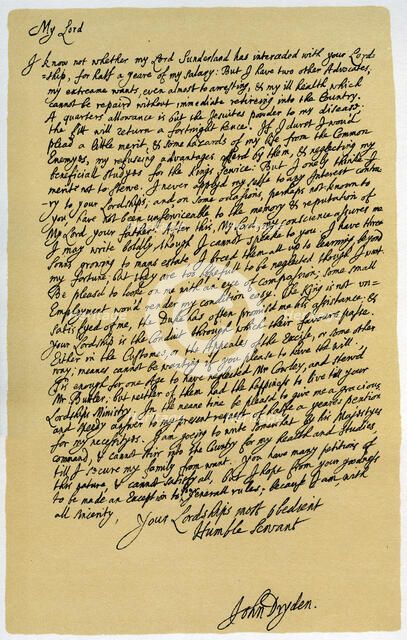 My Lord
I know not whether my Lord Sunderland has interceded with your Lord-
ship, for half a yeare of my salary: But I have two other Advocates,
my extreame wants, even almost to arresting, & my ill health, which
cannot be repaird without immediate retireing into the Country.
A quarters allowance is but the Jesuites powder to my disease;
the fitt will return a fortnight hence. If I durst I wou'd
plead a little merit, & some hazards of my life from the Common
Enemyes, my refuseing advantages offerd by them, & neglecting my
beneficiall studyes for the King's service: But I onely thinke I
merit not to sterve. I never applyd my selfe to any Interest contra-
ry to your Lordship's; and on some occasions, perhaps not known to
you, have not been unserviceable to the memory & reputation of
My Lord your father. After this, My Lord, my conscience assures me
I may write boldly, though I cannot speake to you. I have three
Sonns growing to mans estate, I breed them all up to learning, beyond
my fortune; but they are too hopefull to be neglected though I want.
Be pleasd to looke on me with an eye of compassion; some small
Employment wou'd render my condition easy. The King is not un-
satisfyed of me, the Duke has often promisd me his assistance; &
Your Lordship is the Conduit through which their favours passe.
Either in the Customes, or the Appeales of the Excise, or some other
way; meanes cannot be wanting if you please to have the will.
Tis enough for one Age to have neglected Mr Cowley, and sterv'd
Mr Butler; but neither of them had the happiness to live till your
Lordship's Ministry. In the meane time be pleasd to give me a gracious
and speedy answer to my present request of halfe a yeares pention
for my necessityes. I am going to write somewhat by his Majestyes
command, & cannot stirr into the Country for my health and studies,
till I secure my family from want. You have many petitions of
this nature, & cannot satisfy all, but I hope from your goodness
to be made an Exception to your generall rules; because I am, with
all sincerity,
Your Lordship's most obedient
Humble Servant
John Dryden.